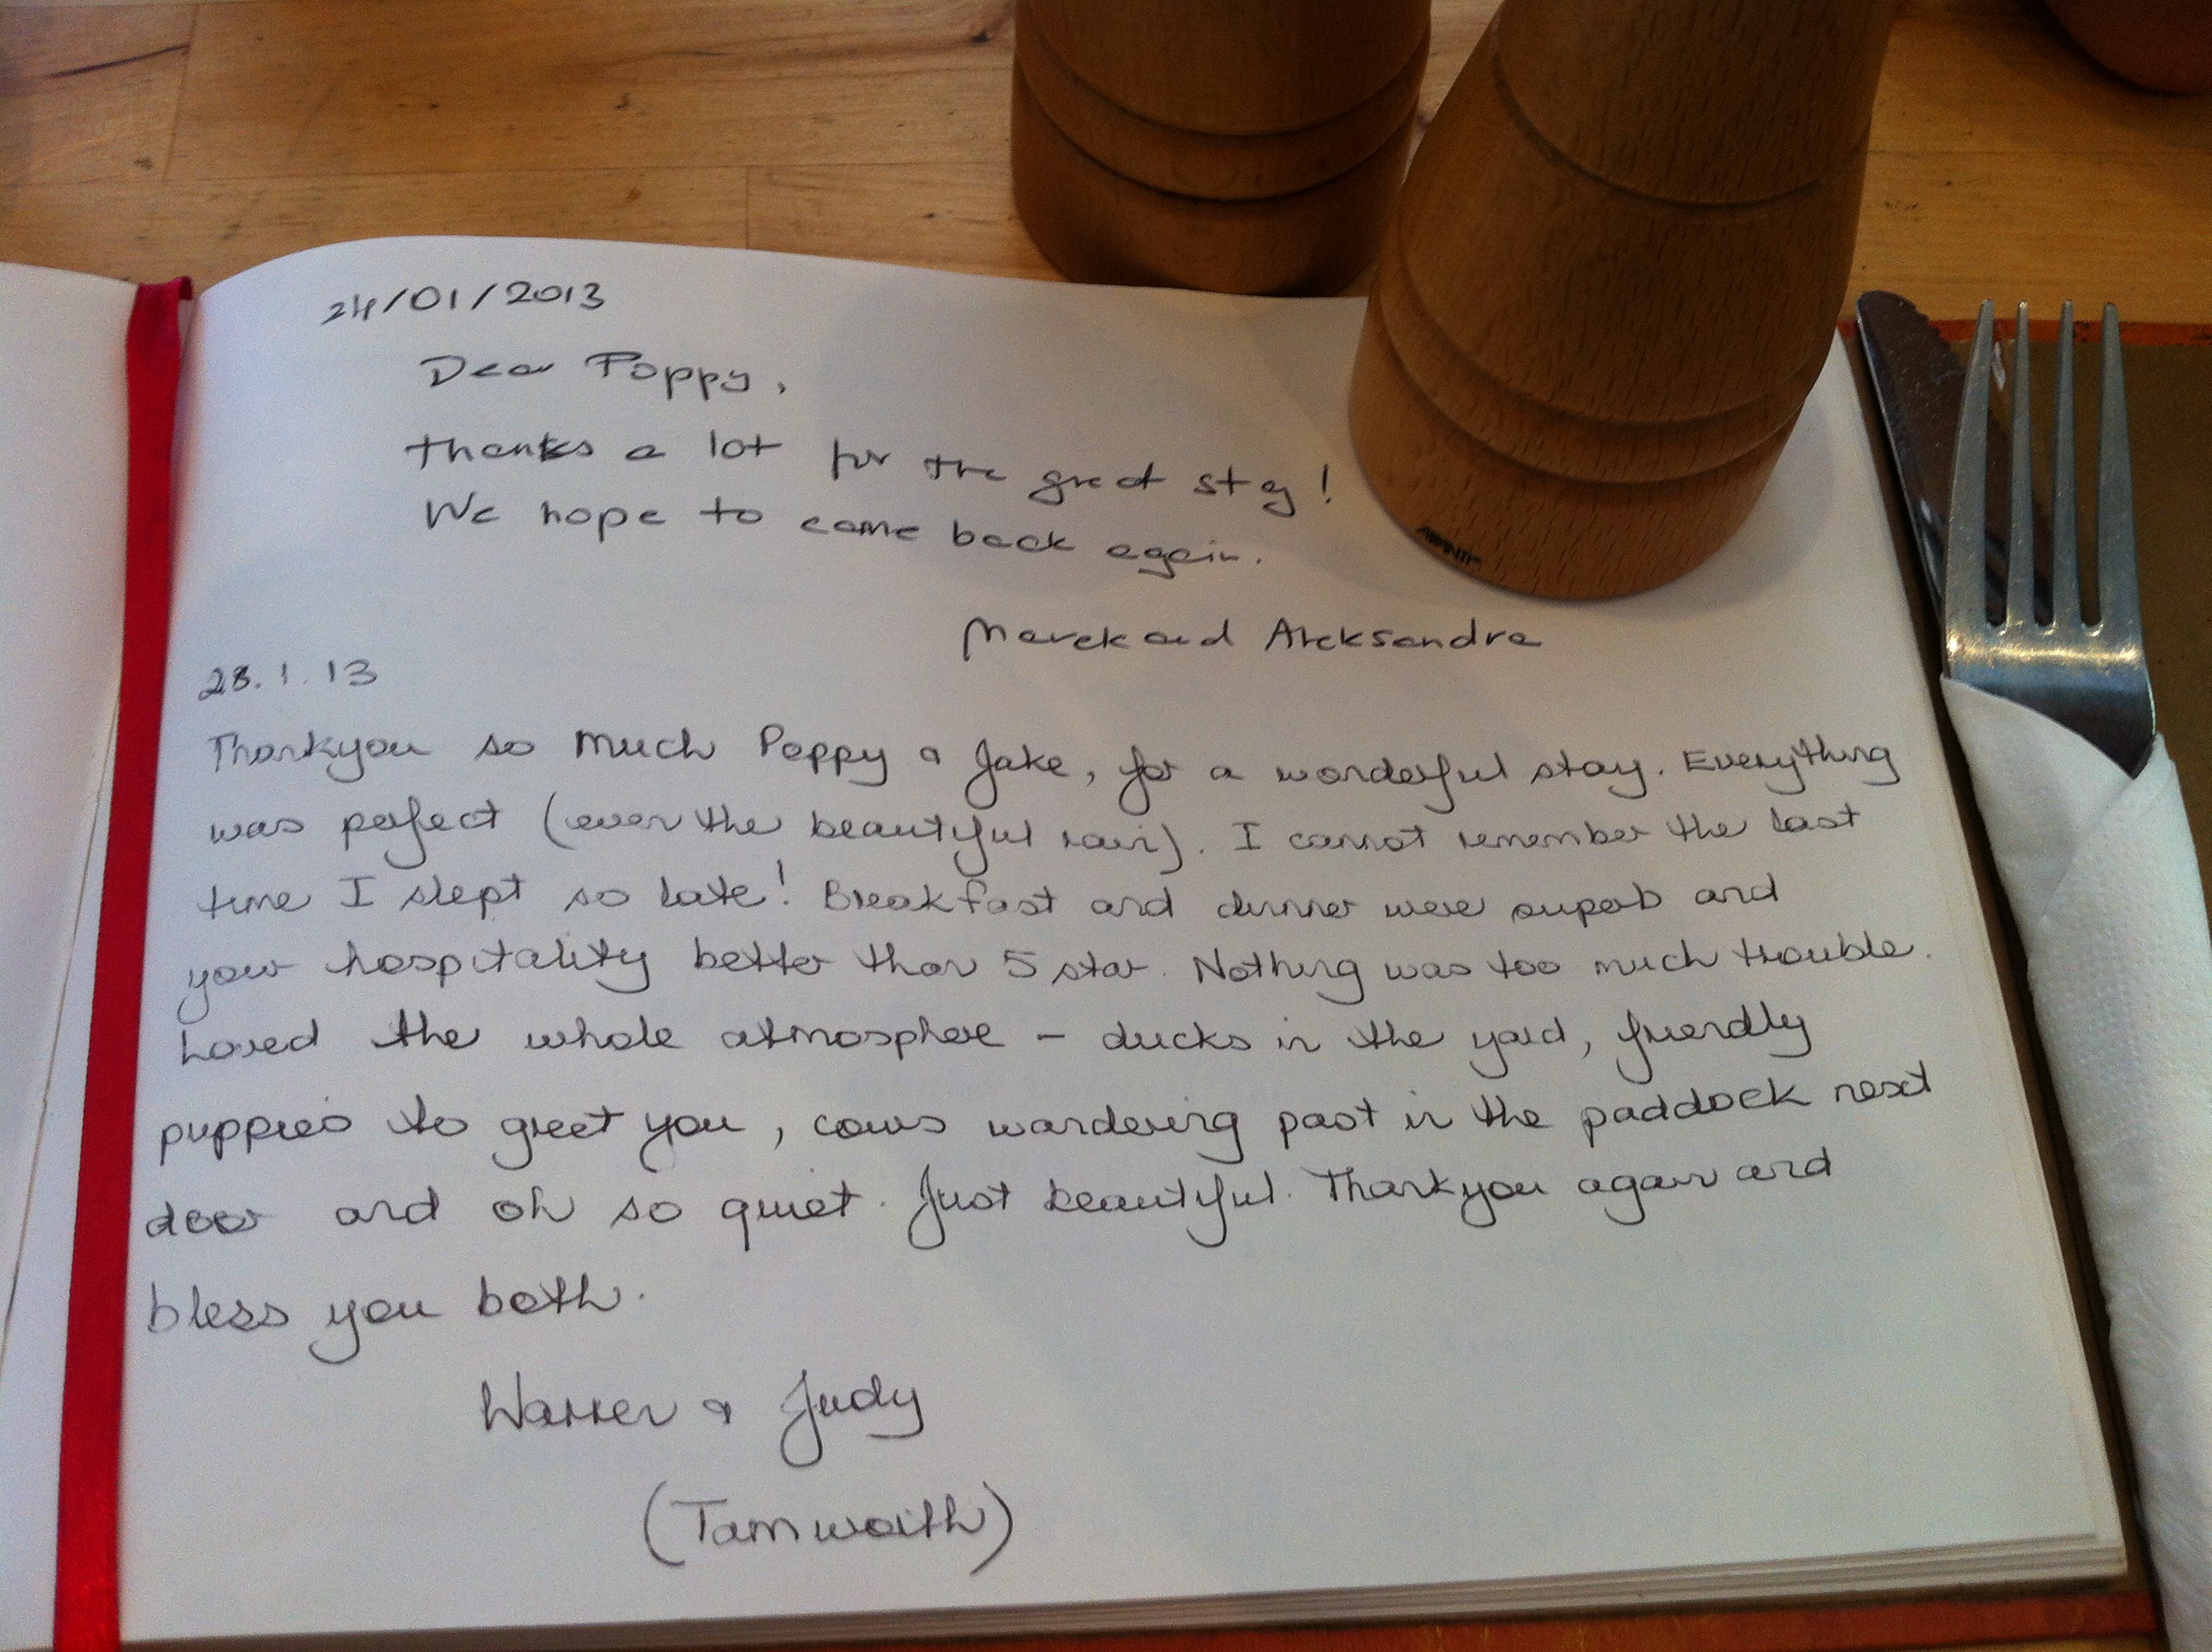 24/01/2013
Dear Poppy,
Thanks a lot for the great stay!
We hope to come back again.
Marek and Aleksandra
28.1.13
Thankyou so much Poppy & Jake, for a wonderful stay. Everything
was perfect (even the beautiful rain). I cannot remember the last
time I slept so late! Breakfast and dinner were superb and
your hospitality better than 5 star. Nothing was too much trouble.
Loved the whole atmosphere - ducks in the yard, friendly
puppies to greet you, cows wandering past in the paddock next
door and oh so quiet. Just beautiful. Thankyou again and
bless you both.
Warren & Judy
(Tamworth)